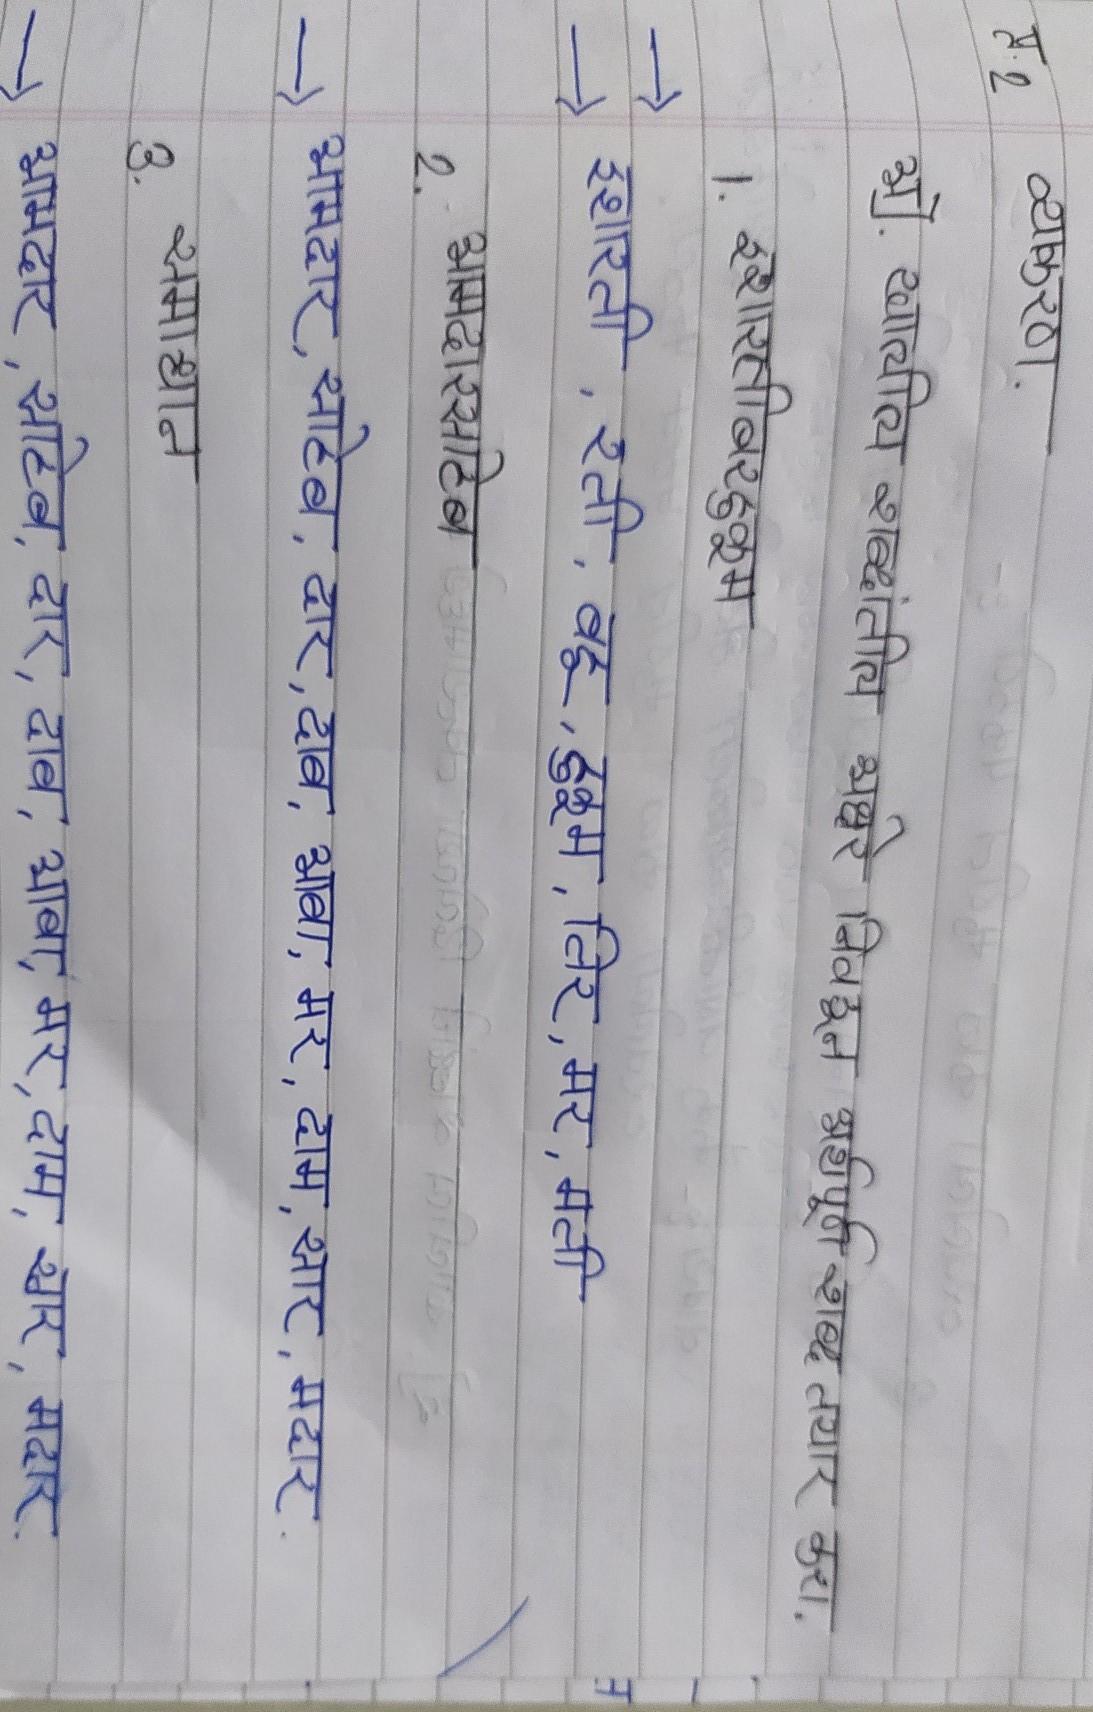 प्र.2 व्याकरण.
ओ. खालील शब्दांतील अक्षरे निवडून अर्थपूर्ण शब्द तयार करा.
1. इशारतीबरहुकूम
→
→ इशारती, रती, बहु, हुकूम, तिर, मर, मती
2. आमदारसाहेब
→ आमदार, साहेब, दार, दाब, आबा, मर, दाम, सार, मदार.
3. समाधान
→ आमदार, साहेब, दार, दाब, आबा, मर, दाम, सार, मदार.